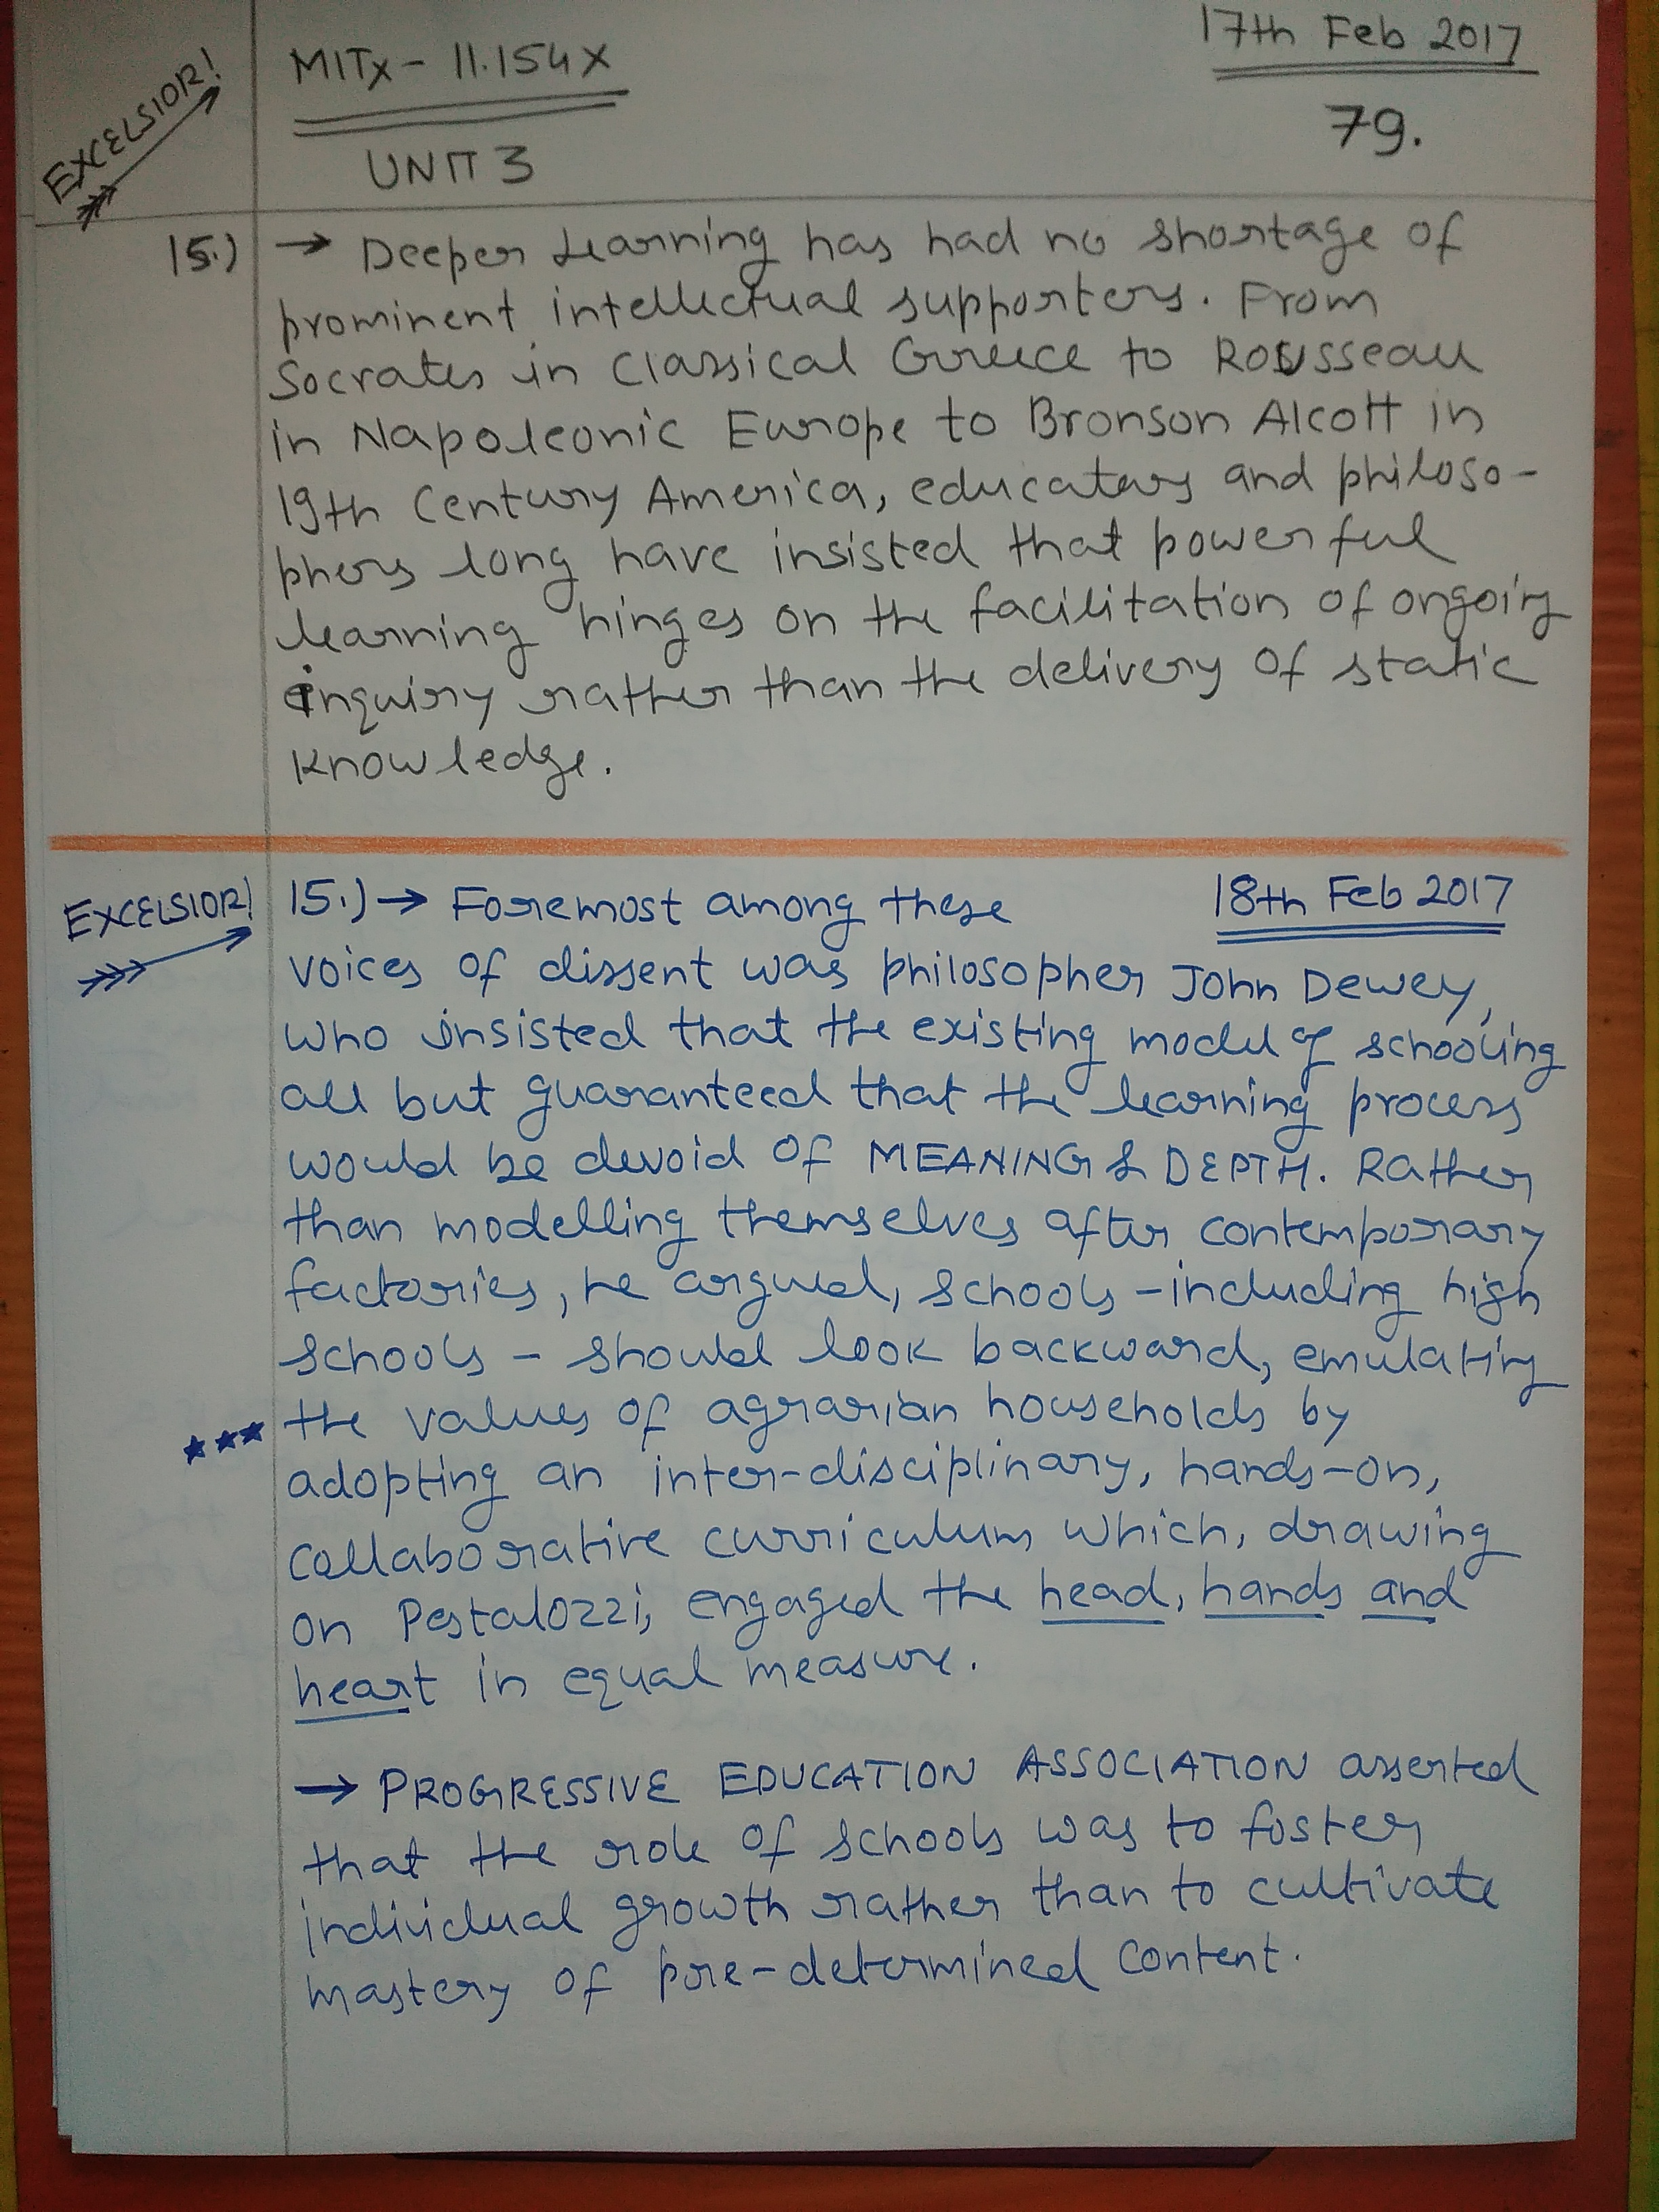 EXCELSIOR!
MITx - 11.154x
17th Feb 2017
UNIT 3
79.
15.) → Deeper Learning has had no shortage of
prominent intellectual supporters. From
Socrates in Classical Greece to Rousseau
in Napoleonic Europe to Bronson Alcott in
19th Century America, educators and philoso-
phers long have insisted that powerful
learning hinges on the facilitation of ongoing
inquiry rather than the delivery of static
knowledge.
EXCELSIOR!
15.) → Foremost among these
18th Feb 2017
voices of dissent was philosopher John Dewey,
who insisted that the existing model of schooling
all but guaranteed that the learning process
would be devoid of MEANING & DEPTH. Rather
than modelling themselves after contemporary
factories, he argued, schools - including high
schools - should look backward, emulating
*** the values of agrarian households by
adopting an inter-disciplinary, hands-on,
collaborative curriculum which, drawing
on Pestalozzi, engaged the head, hands and
heart in equal measure.
→ PROGRESSIVE EDUCATION ASSOCIATION asserted
that the role of schools was to foster
individual growth rather than to cultivate
mastery of pre-determined content.